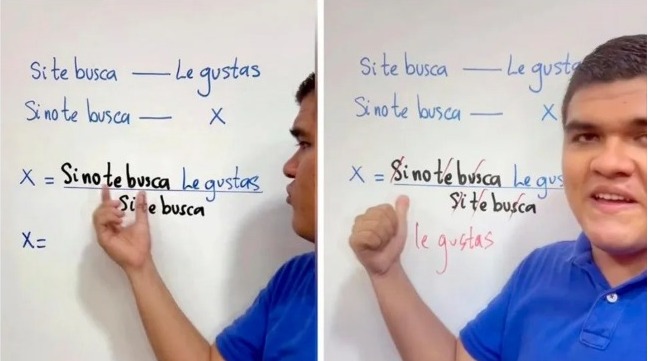 Si te busca — Le gustas
Si no te busca — X
X = Si no te busca Le gustas
Si te busca
X=
Si te busca — Le gusta
Si no te busca — X
X = Si no te busca Le gus
Si te busca
le gustas